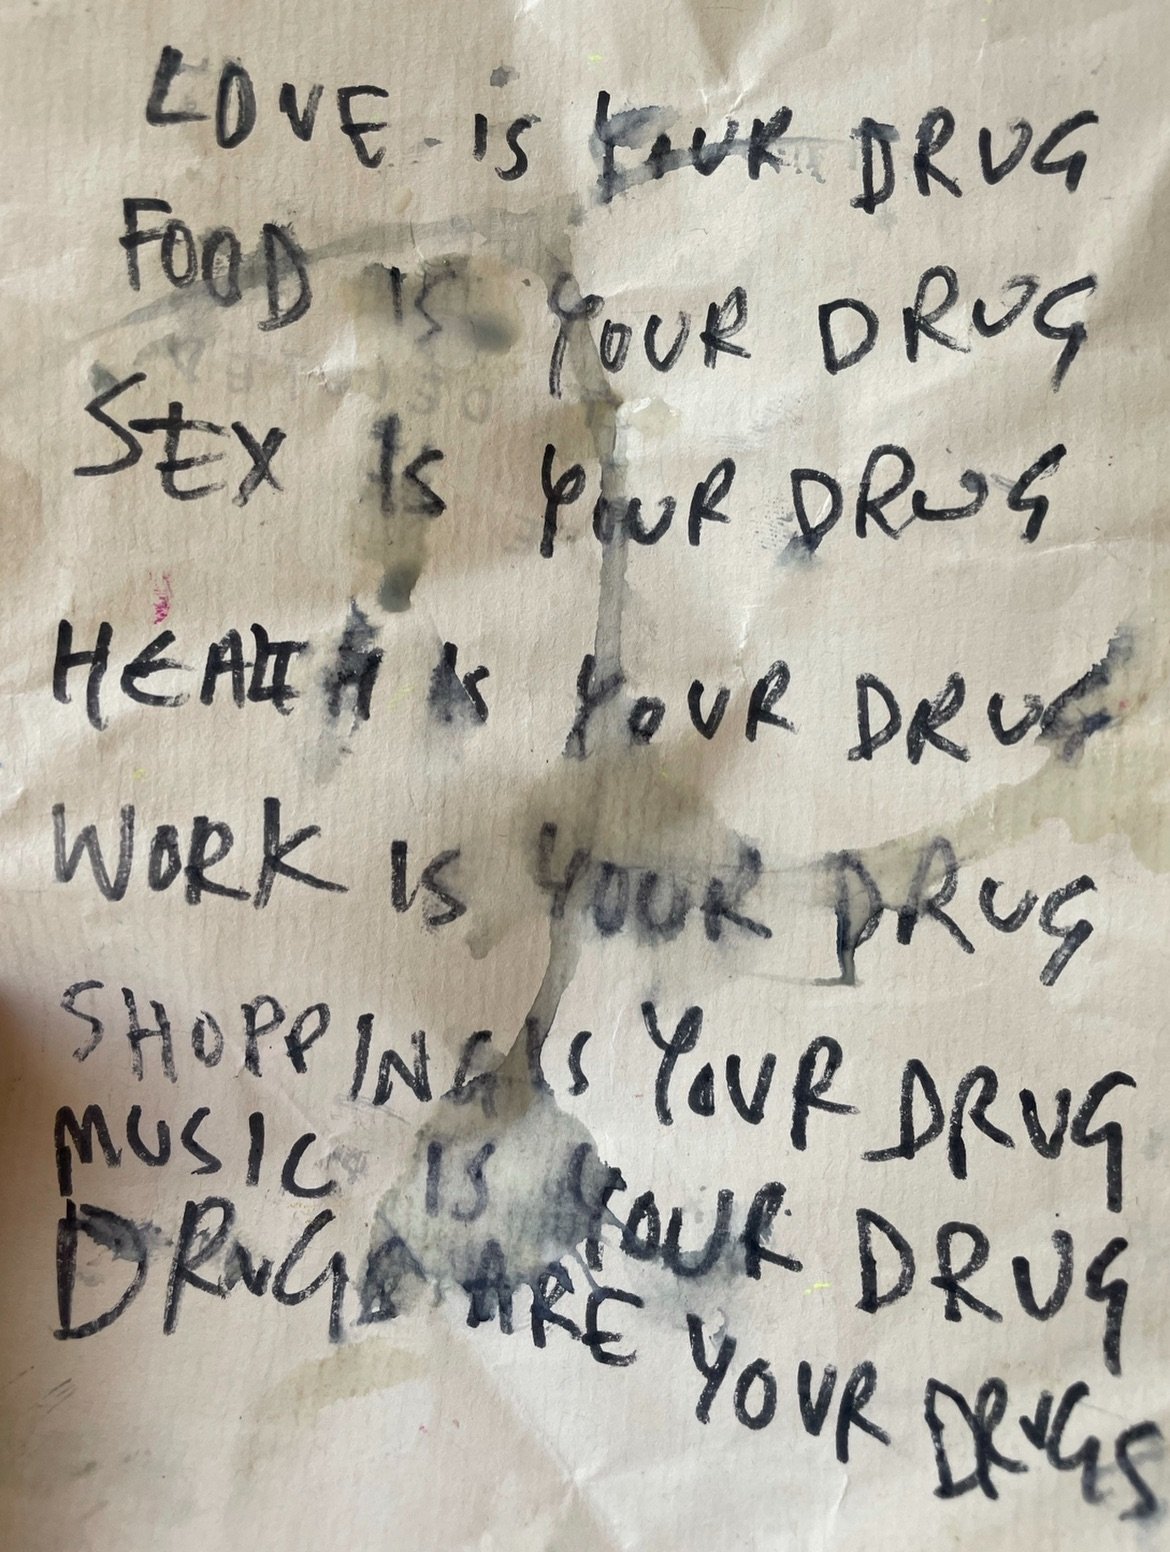 LOVE IS YOUR DRUG
FOOD IS YOUR DRUG
SEX IS YOUR DRUG
HEALTH IS YOUR DRUG
WORK IS YOUR DRUG
SHOPPING IS YOUR DRUG
MUSIC IS YOUR DRUG
DRUGS ARE YOUR DRUGS